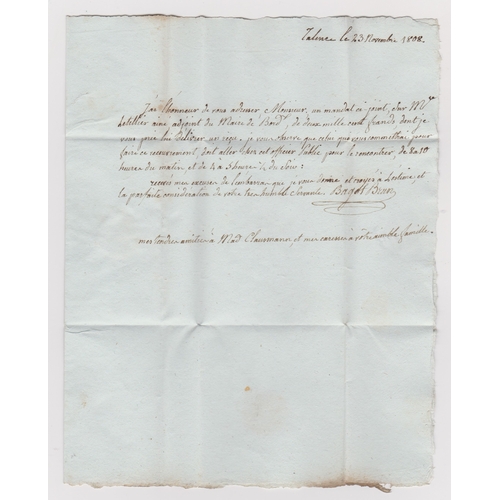 Talence le 23 Novembre 1808.
J'ai l'honneur de vous adresser Monsieur, un mandat ci joint, sur Mr
letellier ainé adjoint du Maire de Bord.x de deux mille cent francs dont je
vous prie lui délivrer un reçu. je vous que celui que vous commettrai pour
faire ce recouvrement, doit aller chez cet officier Public pour le rencontrer, de 8 a 10
heures du matin et de 4 a 5 heures ½ du Soir:
recevez mes excuses de l'embarras que je vous donne et croyez à l'estime, et
la parfaite consideration de votre tres humble Servante. Bapst
mes tendres amitiés à Mad. et mes caresses à votre aimable famille.